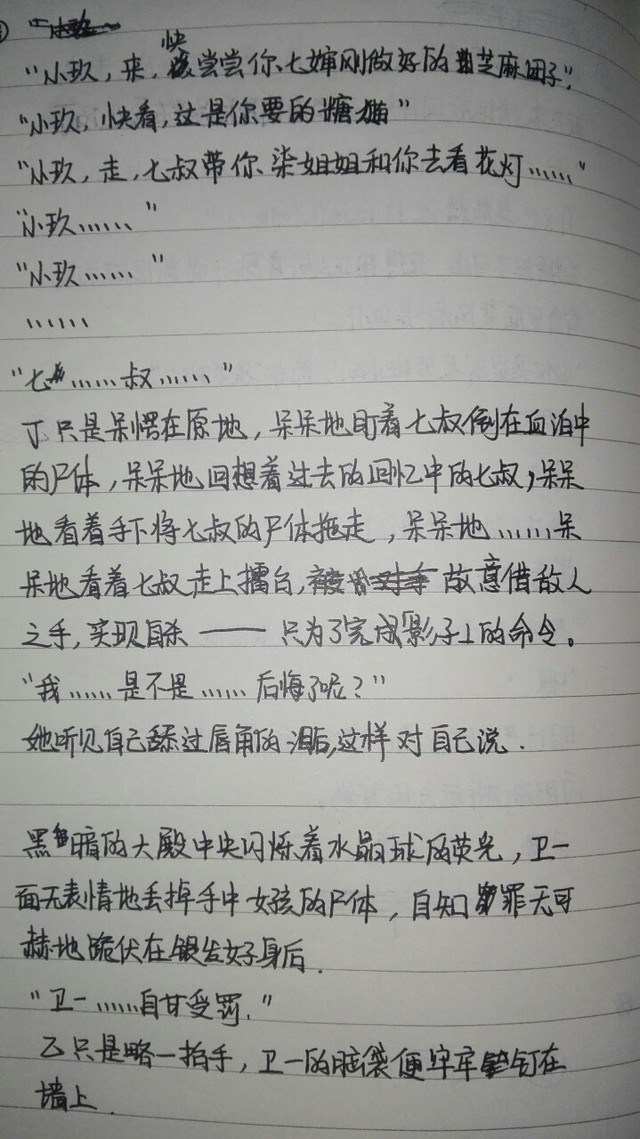 "小玖,来,快尝尝你七婶刚做好的芝麻团子"
"小玖,快看,这是你要的糖猫"
"小玖,走,七叔带你柒姐姐和你去看花灯……"
"小玖……"
"小玖……"
……
"七……叔……"
丁只是呆愣在原地,呆呆地盯着七叔倒在血泊中
的尸体,呆呆地回想着过去的回忆中的七叔,呆呆
地看着手下将七叔的尸体拖走,呆呆地……呆
呆地看着七叔走上擂台,故意借敌人
之手,实现自杀——只为了完成「影子」的命令。
"我……是不是……后悔了呢?"
她听见自己舔过唇角的泪后,这样对自己说.
黑暗的大殿中央闪烁着水晶球的荧光,卫一
面无表情地丢掉手中女孩的尸体,自知罪无可
赫地跪伏在银发女子身后.
"卫一……自甘受罚."
乙只是略一拍手,卫一的脑袋便牢牢钉在
墙上.